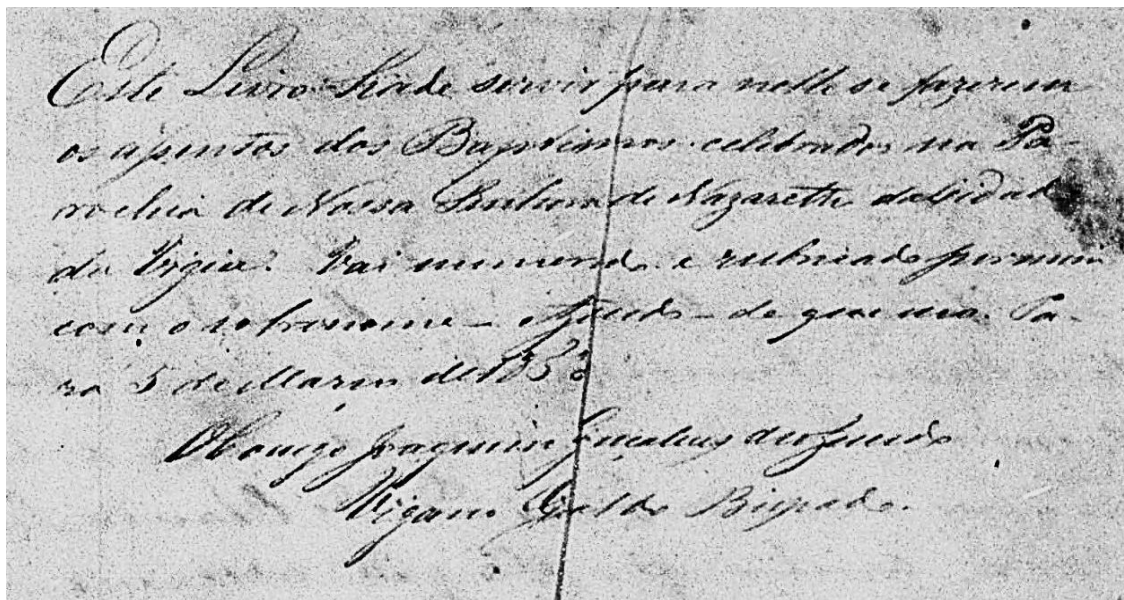 Este Livro hade servir para nelle se fazerem
os assentos dos Baptismos celebrados na Pa-
rochia de Nossa Senhora de Nazareth da Cidade
da Vigia. Vai numerado e rubricado por mim
com o sobrenome - Azevedo - de que uso. Pa-
rá 5 de Março de 185
O Conego Joaquim Gonçalves de Azevedo
Vigario Geral do Bispado.